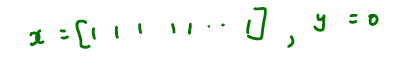 x = [1 1 1 1 1 .. 1], y = 0